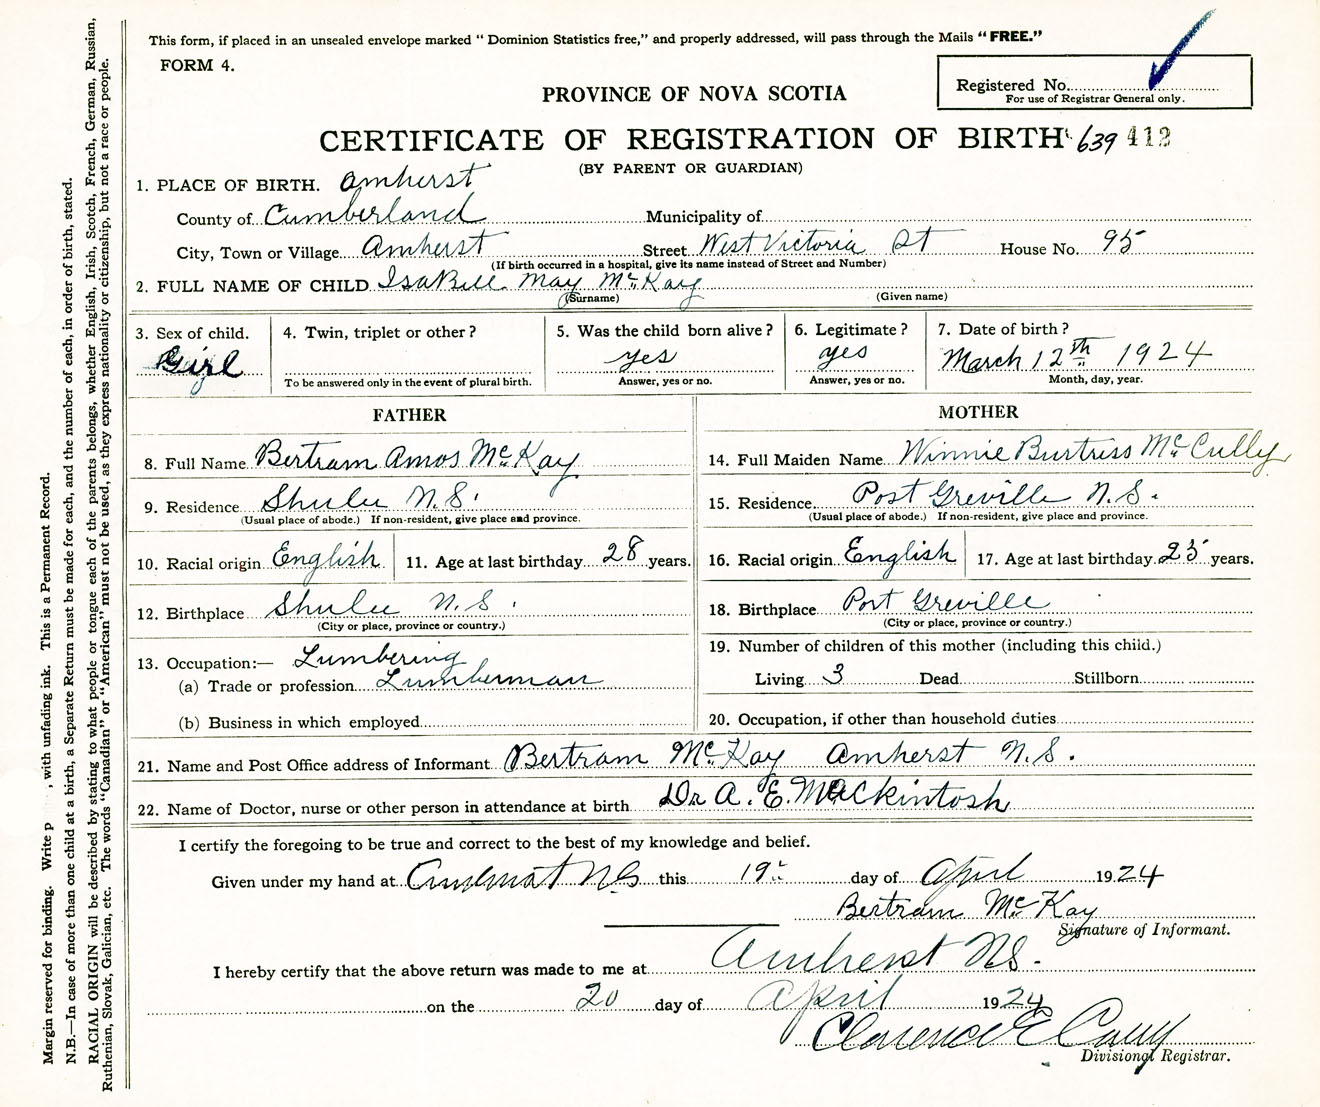 This form, if placed in an unsealed envelope marked " Dominion Statistics free," and properly addressed, will pass through the Mails "FREE."
FORM 4.
Registered No.
For use of Registrar General only.
PROVINCE OF NOVA SCOTIA
CERTIFICATE OF REGISTRATION OF BIRTH 639 412
(BY PARENT OR GUARDIAN)
1. PLACE OF BIRTH. Amherst
County of Cumberland Municipality of
City, Town or Village Amherst Street West Victoria St House No. 95
(If birth occurred in a hospital, give its name instead of Street and Number)
2. FULL NAME OF CHILD IsaBell May McKay
(Surname) (Given name)
3. Sex of child. Girl
4. Twin, triplet or other ?
To be answered only in the event of plural birth.
5. Was the child born alive ? yes
Answer, yes or no.
6. Legitimate ? yes
Answer, yes or no.
7. Date of birth ? March 12th 1924
Month, day, year.
FATHER
8. Full Name Bertram Amos McKay
9. Residence Shulee N.S.
(Usual place of abode.) If non-resident, give place and province.
10. Racial origin English 11. Age at last birthday 28 years.
12. Birthplace Shulee N.S.
(City or place, province or country.)
13. Occupation:— Lumbering
(a) Trade or profession Lumberman
(b) Business in which employed
MOTHER
14. Full Maiden Name Winnie Burtriss McCully
15. Residence Post Greville N.S.
(Usual place of abode.) If non-resident, give place and province.
16. Racial origin English 17. Age at last birthday 25 years.
18. Birthplace Port Greville
(City or place, province or country.)
19. Number of children of this mother (including this child.)
Living 3 Dead Stillborn
20. Occupation, if other than household duties
21. Name and Post Office address of Informant Bertram McKay Amherst N.S.
22. Name of Doctor, nurse or other person in attendance at birth Dr A. E. MacKintosh
I certify the foregoing to be true and correct to the best of my knowledge and belief.
Given under my hand at Amherst NS this 19 day of April 1924
Bertram McKay
Signature of Informant.
I hereby certify that the above return was made to me at Amherst NS.
on the 20 day of April 1924
Clarence E
Divisional Registrar.
Margin reserved for binding. Write p , with unfading ink. This is a Permanent Record.
N.B.—In case of more than one child at a birth, a Separate Return must be made for each, and the number of each, in order of birth, stated.
RACIAL ORIGIN will be described by stating to what people or tongue each of the parents belongs, whether English, Irish, Scotch, French, German, Russian,
Ruthenian, Slovak, Galician, etc. The words "Canadian" or "American" must not be used, as they express nationality or citizenship, but not a race or people.